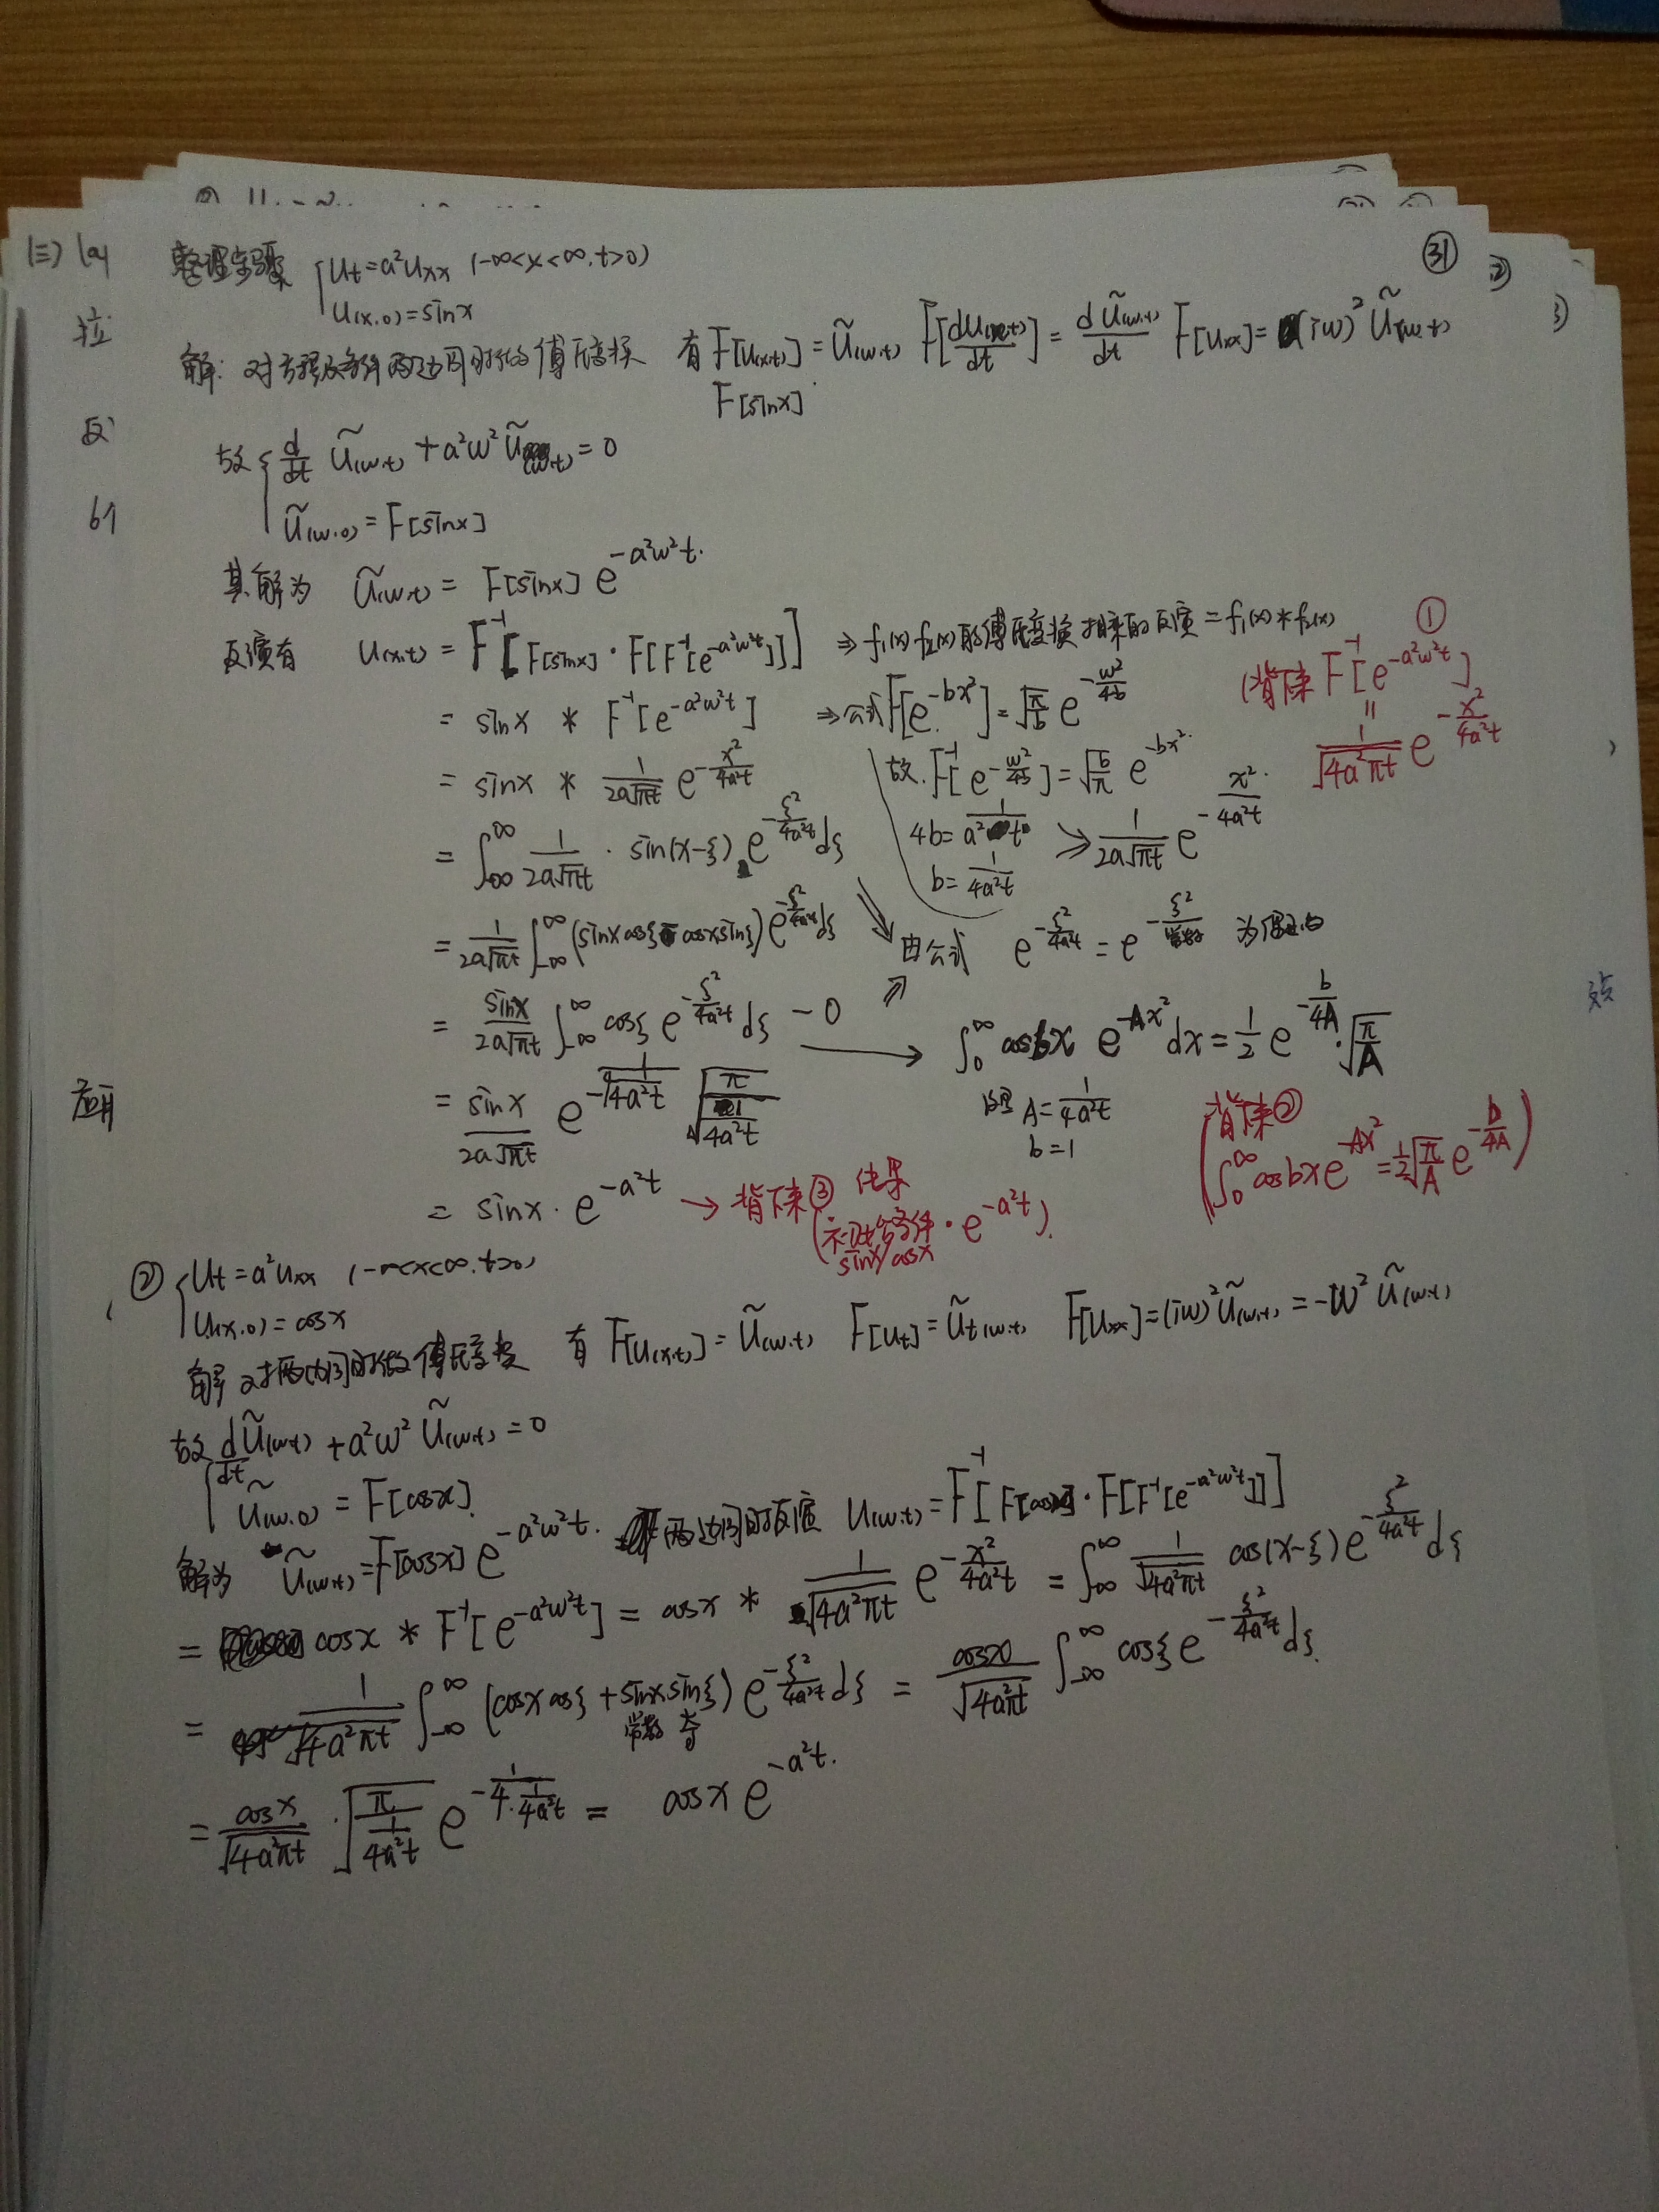 整理步骤 { Ut = a²Uxx (-∞<x<∞, t>0) ㉛
U(x.0) = sinx
解: 对方程及条件两边同时做傅氏变换 有 F[U(x.t)] = Ũ(w.t) F[dU(x.t)/dt] = dŨ(w.t)/dt F[Uxx] = (iw)²Ũ(w.t)
F[sinx]
故 { d/dt Ũ(w.t) + a²w²Ũ(w.t) = 0
Ũ(w.0) = F[sinx]
其解为 Ũ(w.t) = F[sinx] e^{-a²w²t}.
反演有 U(x.t) = F⁻¹[F[sinx]·F[F⁻¹[e^{-a²w²t}]]] ⇒ f₁(x) f₂(x) 的傅氏变换相乘的反演 = f₁(x)*f₂(x)
①
(背下来 F⁻¹[e^{-a²w²t}]
||
1/√(4a²πt) e^{-x²/4a²t}
= sinx * F⁻¹[e^{-a²w²t}] ⇒ 公式 F[e^{-bx²}] = √(π/b) e^{-w²/4b}
= sinx * 1/(2a√πt) e^{-x²/4a²t} 故. F⁻¹[e^{-w²/4b}] = √(b/π) e^{-bx²}.
= ∫_{-∞}^{∞} 1/(2a√πt) · sin(x-ξ) e^{-ξ²/4a²t} dξ 4b = 1/(a²t) ⇒ 1/(2a√πt) e^{-x²/4a²t}.
b = 1/(4a²t)
= 1/(2a√πt) ∫_{-∞}^{∞} (sinx cosξ - cosx sinξ) e^{-ξ²/4a²t} dξ 由公式 e^{-ξ²/4a²t} = e^{-ξ²/常数} 为偶
= sinx/(2a√πt) ∫_{-∞}^{∞} cosξ e^{-ξ²/4a²t} dξ - 0 → ∫₀^∞ cosbx e^{-Ax²} dx = 1/2 e^{-b/4A}·√(π/A)
= sinx/(2a√πt) e^{-1/(4·1/4a²t)} √(π/(1/4a²t)) 这里 A = 1/(4a²t)
b = 1
(背下来②
∫₀^∞ cosbx e^{-Ax²} = 1/2 √(π/A) e^{-b/4A})
= sinx · e^{-a²t} → 背下来③ 结果
(初始条件 · e^{-a²t}).
sinx/cosx
② { Ut = a²Uxx (-∞<x<∞, t>0)
U(x.0) = cosx
解 对两边同时做傅氏变换 有 F[U(x.t)] = Ũ(w.t) F[Ut] = Ũt(w.t) F[Uxx] = (iw)²Ũ(w.t) = -w²Ũ(w.t)
故 { dŨ(w.t)/dt + a²w²Ũ(w.t) = 0
Ũ(w.0) = F[cosx].
解为 Ũ(w.t) = F[cosx] e^{-a²w²t}. 两边同时反演 U(w.t) = F⁻¹[F[cosx]·F[F⁻¹[e^{-a²w²t}]]]
= cosx * F⁻¹[e^{-a²w²t}] = cosx * 1/√(4a²πt) e^{-x²/4a²t} = ∫_{-∞}^{∞} 1/√(4a²πt) cos(x-ξ) e^{-ξ²/4a²t} dξ
= 1/√(4a²πt) ∫_{-∞}^{∞} (cosx cosξ + sinx sinξ) e^{-ξ²/4a²t} dξ = cosx/√(4a²πt) ∫_{-∞}^{∞} cosξ e^{-ξ²/4a²t} dξ.
常数 奇
= cosx/√(4a²πt) · √(π/(1/4a²t)) e^{-1/(4·1/4a²t)} = cosx e^{-a²t}.